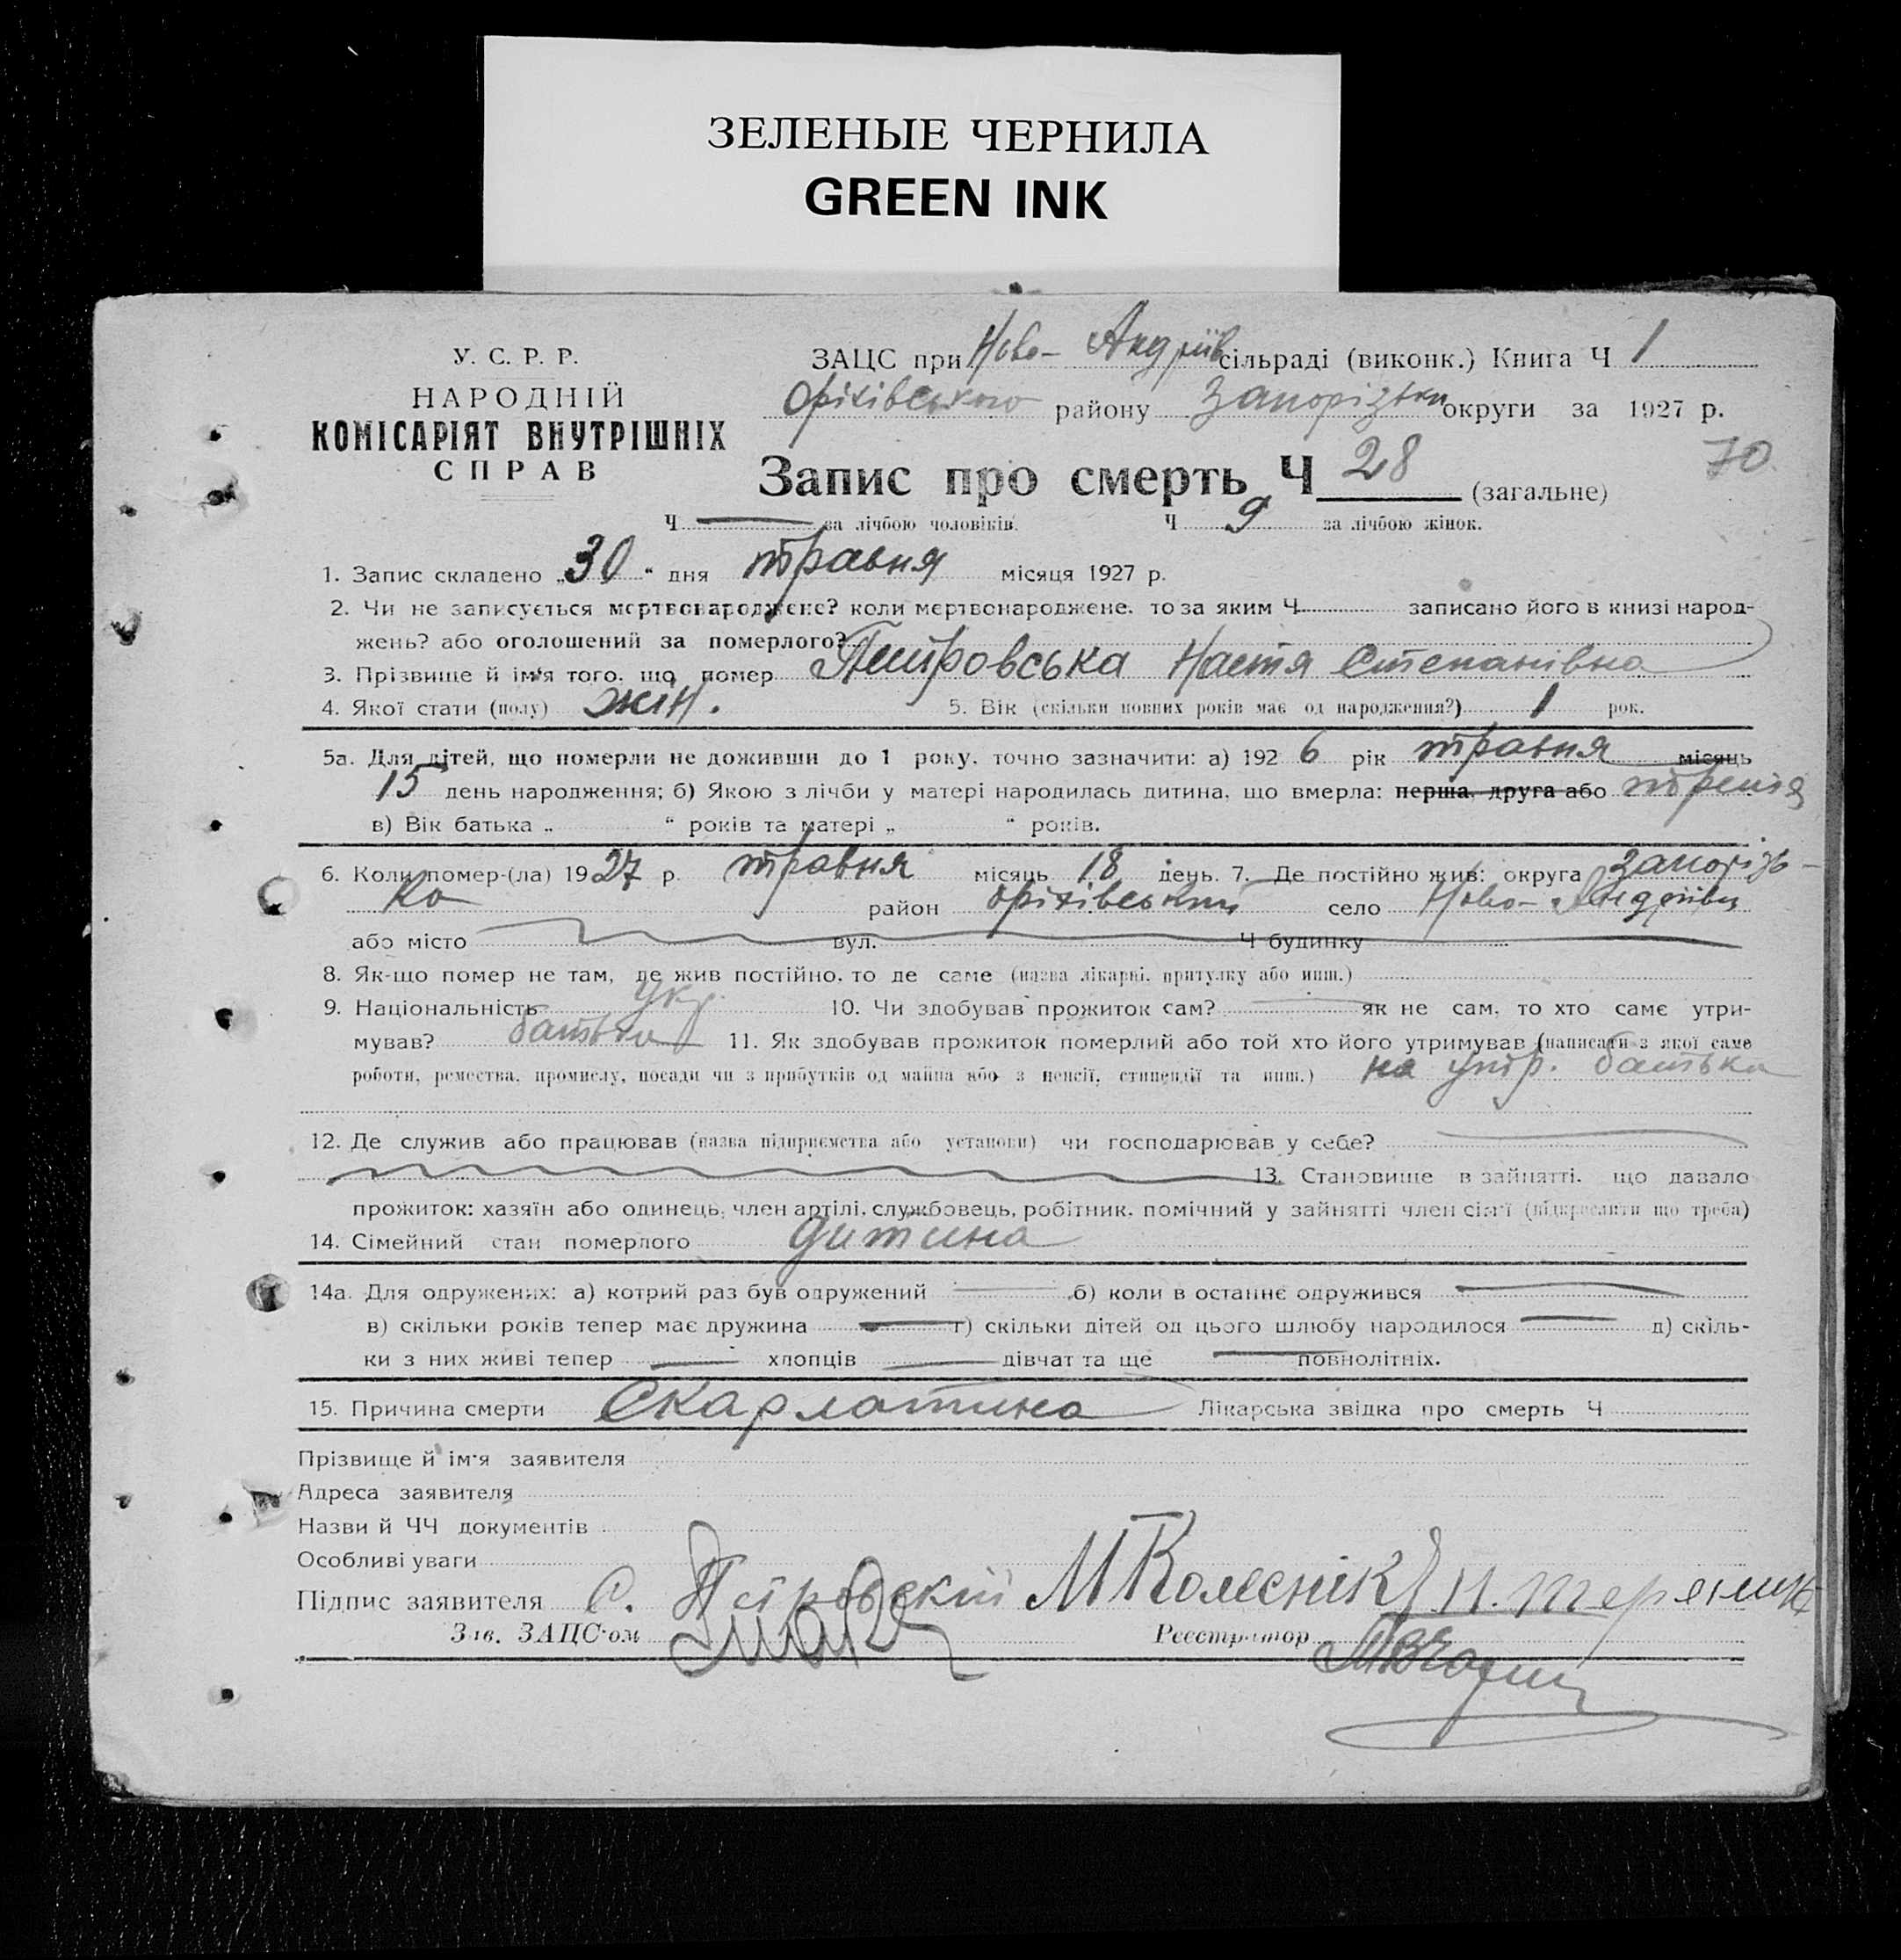 ЗЕЛЕНЫЕ ЧЕРНИЛА
GREEN INK
У. С. Р. Р.
НАРОДНІЙ
КОМІСАРІЯТ ВНУТРІШНІХ
СПРАВ
ЗАЦС при Ново- Андріїв сільраді (виконк.) Книга Ч 1
Оріхівського району Запорізьки округи за 1927 р.
Запис про смерть Ч 28 (загальне) 70
Ч — за лічбою чоловіків. Ч 9 за лічбою жінок.
1. Запис складено „30“ дня травня місяця 1927 р.
2. Чи не записується мертвонароджене? коли мертвонароджене, то за яким Ч записано його в книзі народ-
жень? або оголошений за померлого?
3. Прізвище й ім'я того, що помер Петровська Настя Степанівна
4. Якої стати (полу) жін. 5. Вік (скільки повних років має од народження?) 1 рок.
5а. Для дітей, що померли не доживши до 1 року, точно зазначити: а) 1926 рік травня місяць
15 день народження; б) Якою з лічби у матері народилась дитина, що вмерла: перша, друга або третя
в) Вік батька „ “ років та матері „ “ років.
6. Коли помер-(ла) 1927 р. травня місяць 18 день. 7. Де постійно жив: округа Запорізь-
ка район Оріхівський село Ново-Андріївці
або місто вул. Ч будинку
8. Як-що помер не там, де жив постійно, то де саме (назва лікарні, притулку або инш.)
9. Національність укр. 10. Чи здобував прожиток сам? — як не сам, то хто саме утри-
мував? батьки 11. Як здобував прожиток померлий або той хто його утримував (написати з якої саме
роботи, ремества, промислу, посади чи з прибутків од майна або з пенсії, стипендії та инш.) на утр. батька
12. Де служив або працював (назва підприємства або установи) чи господарював у себе?
13. Становище в зайнятті, що давало
прожиток: хазяїн або одинець, член артілі, службовець, робітник, помічний у зайнятті член сім'ї (підкреслити що треба)
14. Сімейний стан померлого дитина
14а. Для одружених: а) котрий раз був одружений — б) коли в останнє одружився —
в) скільки років тепер має дружина — г) скільки дітей од цього шлюбу народилося — д) скіль-
ки з них живі тепер — хлопців — дівчат та ще — повнолітніх.
15. Причина смерти Скарлатина Лікарська звідка про смерть Ч
Прізвище й ім'я заявителя
Адреса заявителя
Назви й ЧЧ документів
Особливі уваги
Підпис заявителя С. Петровский М Колеснік
Зав. ЗАЦС-ом Реєстратор